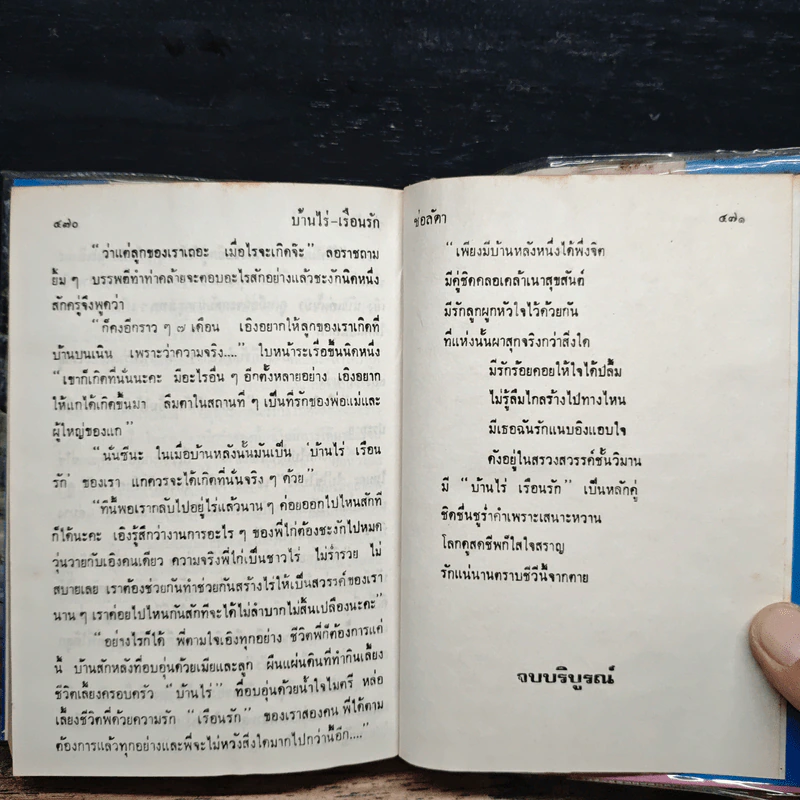 ๔๗๐ บ้านไร่-เรือนรัก
"ว่าแต่ลูกของเราเถอะ เมื่อไรจะเกิดจ๊ะ" ลอราชถาม
ยิ้ม ๆ บรรพตีทำท่าคล้ายจะตอบอะไรสักอย่างแล้วชะงักนิดหนึ่ง
สักครู่จึงพูดว่า
"ก็คงอีกราว ๆ ๗ เดือน เอิงอยากให้ลูกของเราเกิดที่
บ้านบนเนิน เพราะว่าความจริง...." ใบหน้าระเรื่อขึ้นนิดหนึ่ง
"เขาก็เกิดที่นั่นนะคะ มีอะไรอื่น ๆ อีกตั้งหลายอย่าง เอิงอยาก
ให้แกได้เกิดขึ้นมา ลืมตาในสถานที่ ๆ เป็นที่รักของพ่อแม่และ
ผู้ใหญ่ของแก"
"นั่นซีนะ ในเมื่อบ้านหลังนั้นมันเป็น 'บ้านไร่ เรือน
รัก' ของเรา แกควรจะได้เกิดที่นั่นจริง ๆ ด้วย"
"ทีนี้พอเรากลับไปอยู่ไร่แล้วนาน ๆ ค่อยออกไปไหนสักที
ก็ได้นะคะ เอิงรู้สึกว่างานการอะไร ๆ ของพี่ไก่ต้องชะงักไปหมด
วุ่นวายกับเอิงคนเดียว ความจริงพี่ไก่เป็นชาวไร่ ไม่ร่ำรวย ไม่
สบายเลย เราต้องช่วยกันทำช่วยกันสร้างไร่ให้เป็นสวรรค์ของเรา
นาน ๆ เราค่อยไปไหนกันสักทีจะได้ไม่ลำบากไม่สิ้นเปลืองนะคะ"
"อย่างไรก็ได้ พี่ตามใจเอิงทุกอย่าง ชีวิตพี่ก็ต้องการแค่
นี้ บ้านสักหลังที่อบอุ่นด้วยเมียและลูก ผืนแผ่นดินที่ทำกินเลี้ยง
ชีวิตเลี้ยงครอบครัว "บ้านไร่" ที่อบอุ่นด้วยน้ำใจไมตรี หล่อ
เลี้ยงชีวิตพี่ด้วยความรัก "เรือนรัก" ของเราสองคน พี่ได้ตาม
ต้องการแล้วทุกอย่างและพี่จะไม่หวังสิ่งใดมากไปกว่านี้อีก...."
ช่อลัดา ๔๗๑
"เพียงมีบ้านหลังหนึ่งได้พึ่งจิต
มีคู่ชิดคลอเคล้าเนาสุขสันต์
มีรักลูกผูกหัวใจไว้ด้วยกัน
ที่แห่งนั้นผาสุกจริงกว่าสิ่งใด
มีรักร้อยคอยให้ใจได้ปลื้ม
ไม่รู้ลืมไกลร้างไปทางไหน
มีเธอฉันรักแนบอิงแอบใจ
ดังอยู่ในสรวงสวรรค์ชั้นวิมาน
มี "บ้านไร่ เรือนรัก" เป็นหลักคู่
ชิดชื่นชูร่ำคำเพราะเสนาะหวาน
โลกดุสดชีพก็ใสใจสราญ
รักแน่นานตราบชีวีนี้จากตาย
จบบริบูรณ์